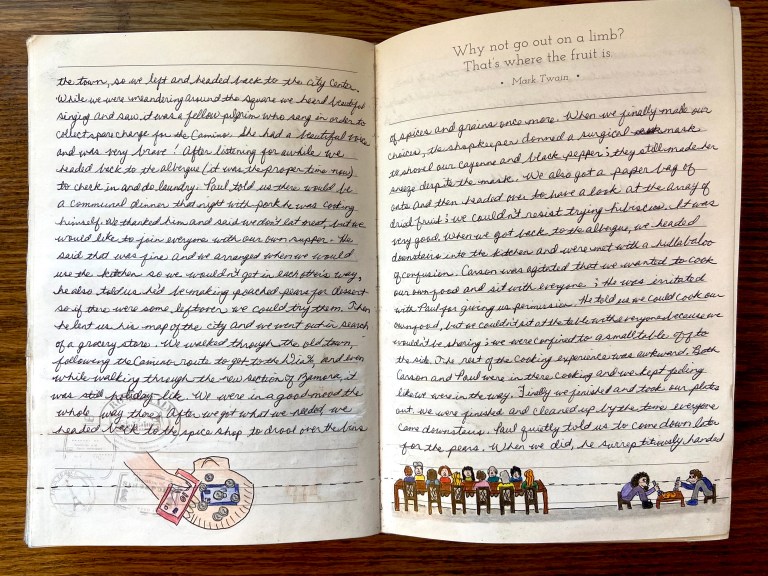 the town, so we left and headed back to the city center.
While we were meandering around the square we heard beautiful
singing and saw it was a fellow pilgrim who sang in order to
collect spare change for the Camino. She had a beautiful voice
and was very brave! After listening for awhile we
headed back to the albergue (it was the proper time now)
to check in and do laundry. Paul told us there would be
a communal dinner that night with pork he was cooking
himself. We thanked him and said we don't eat meat, but we
would like to join everyone with our own supper. He
said that was fine and we arranged when we would
use the kitchen so we wouldn't get in each other's way,
he also told us he'd be making poached pears for dessert
so if there were some leftover we could try them. Then
he lent us his map of the city and we went out in search
of a grocery store. We walked through the old town,
following the Camino route to get to the Día%, and even
while walking through the new section of Zamora, it
was still holiday-like. We were in a good mood the
whole way there. After we got what we needed we
headed back to the spice shop to drool over the bins
Why not go out on a limb?
That's where the fruit is
• Mark Twain •
of spices and grains once more. When we finally made our
choices, the shopkeeper donned a surgical mask
to shovel our cayenne and black pepper; they still made her
sneeze despite the mask. We also got a paper bag of
oats and then headed over to have a look at the array of
dried fruit; we couldn't resist trying hibiscus. It was
very good. When we got back to the albergue, we headed
downstairs into the kitchen and were met with a hullabaloo
of confusion. Carson was agitated that we wanted to cook
our own food and sit with everyone; He was irritated
with Paul for giving us permission. He told us we could cook our
own food, but we couldn't sit at the table with everyone because we
wouldn't be sharing; we were confined to a small table off to
the side. The rest of the cooking experience was awkward. Both
Carson and Paul were in there cooking and we kept feeling
like we were in the way. Finally we finished and took our plates
out. We were finished and cleaned up by the time everyone
came downstairs. Paul quietly told us to come down later
for the pears. When we did, he surreptitiously handed